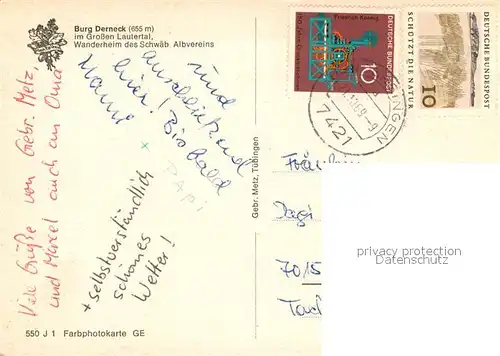 Burg Derneck (655 m)
im Großen Lautertal,
Wanderheim des Schwäb. Albvereins
Viele Grüße von Gebr. Metz
und Marcel auch an Oma
und
anscheinend
hier! Bis bald
PAPI
+ selbstverständlich
schönes
Wetter!
550 J 1 Farbphotokarte GE
Gebr. Metz, Tübingen
Friedrich Koenig
DEUTSCHE BUNDESPOST
10
SCHÜTZT DIE NATUR
10
DEUTSCHE BUNDESPOST
INGEN
69-9
7421
70/5
privacy protection
Datenschutz